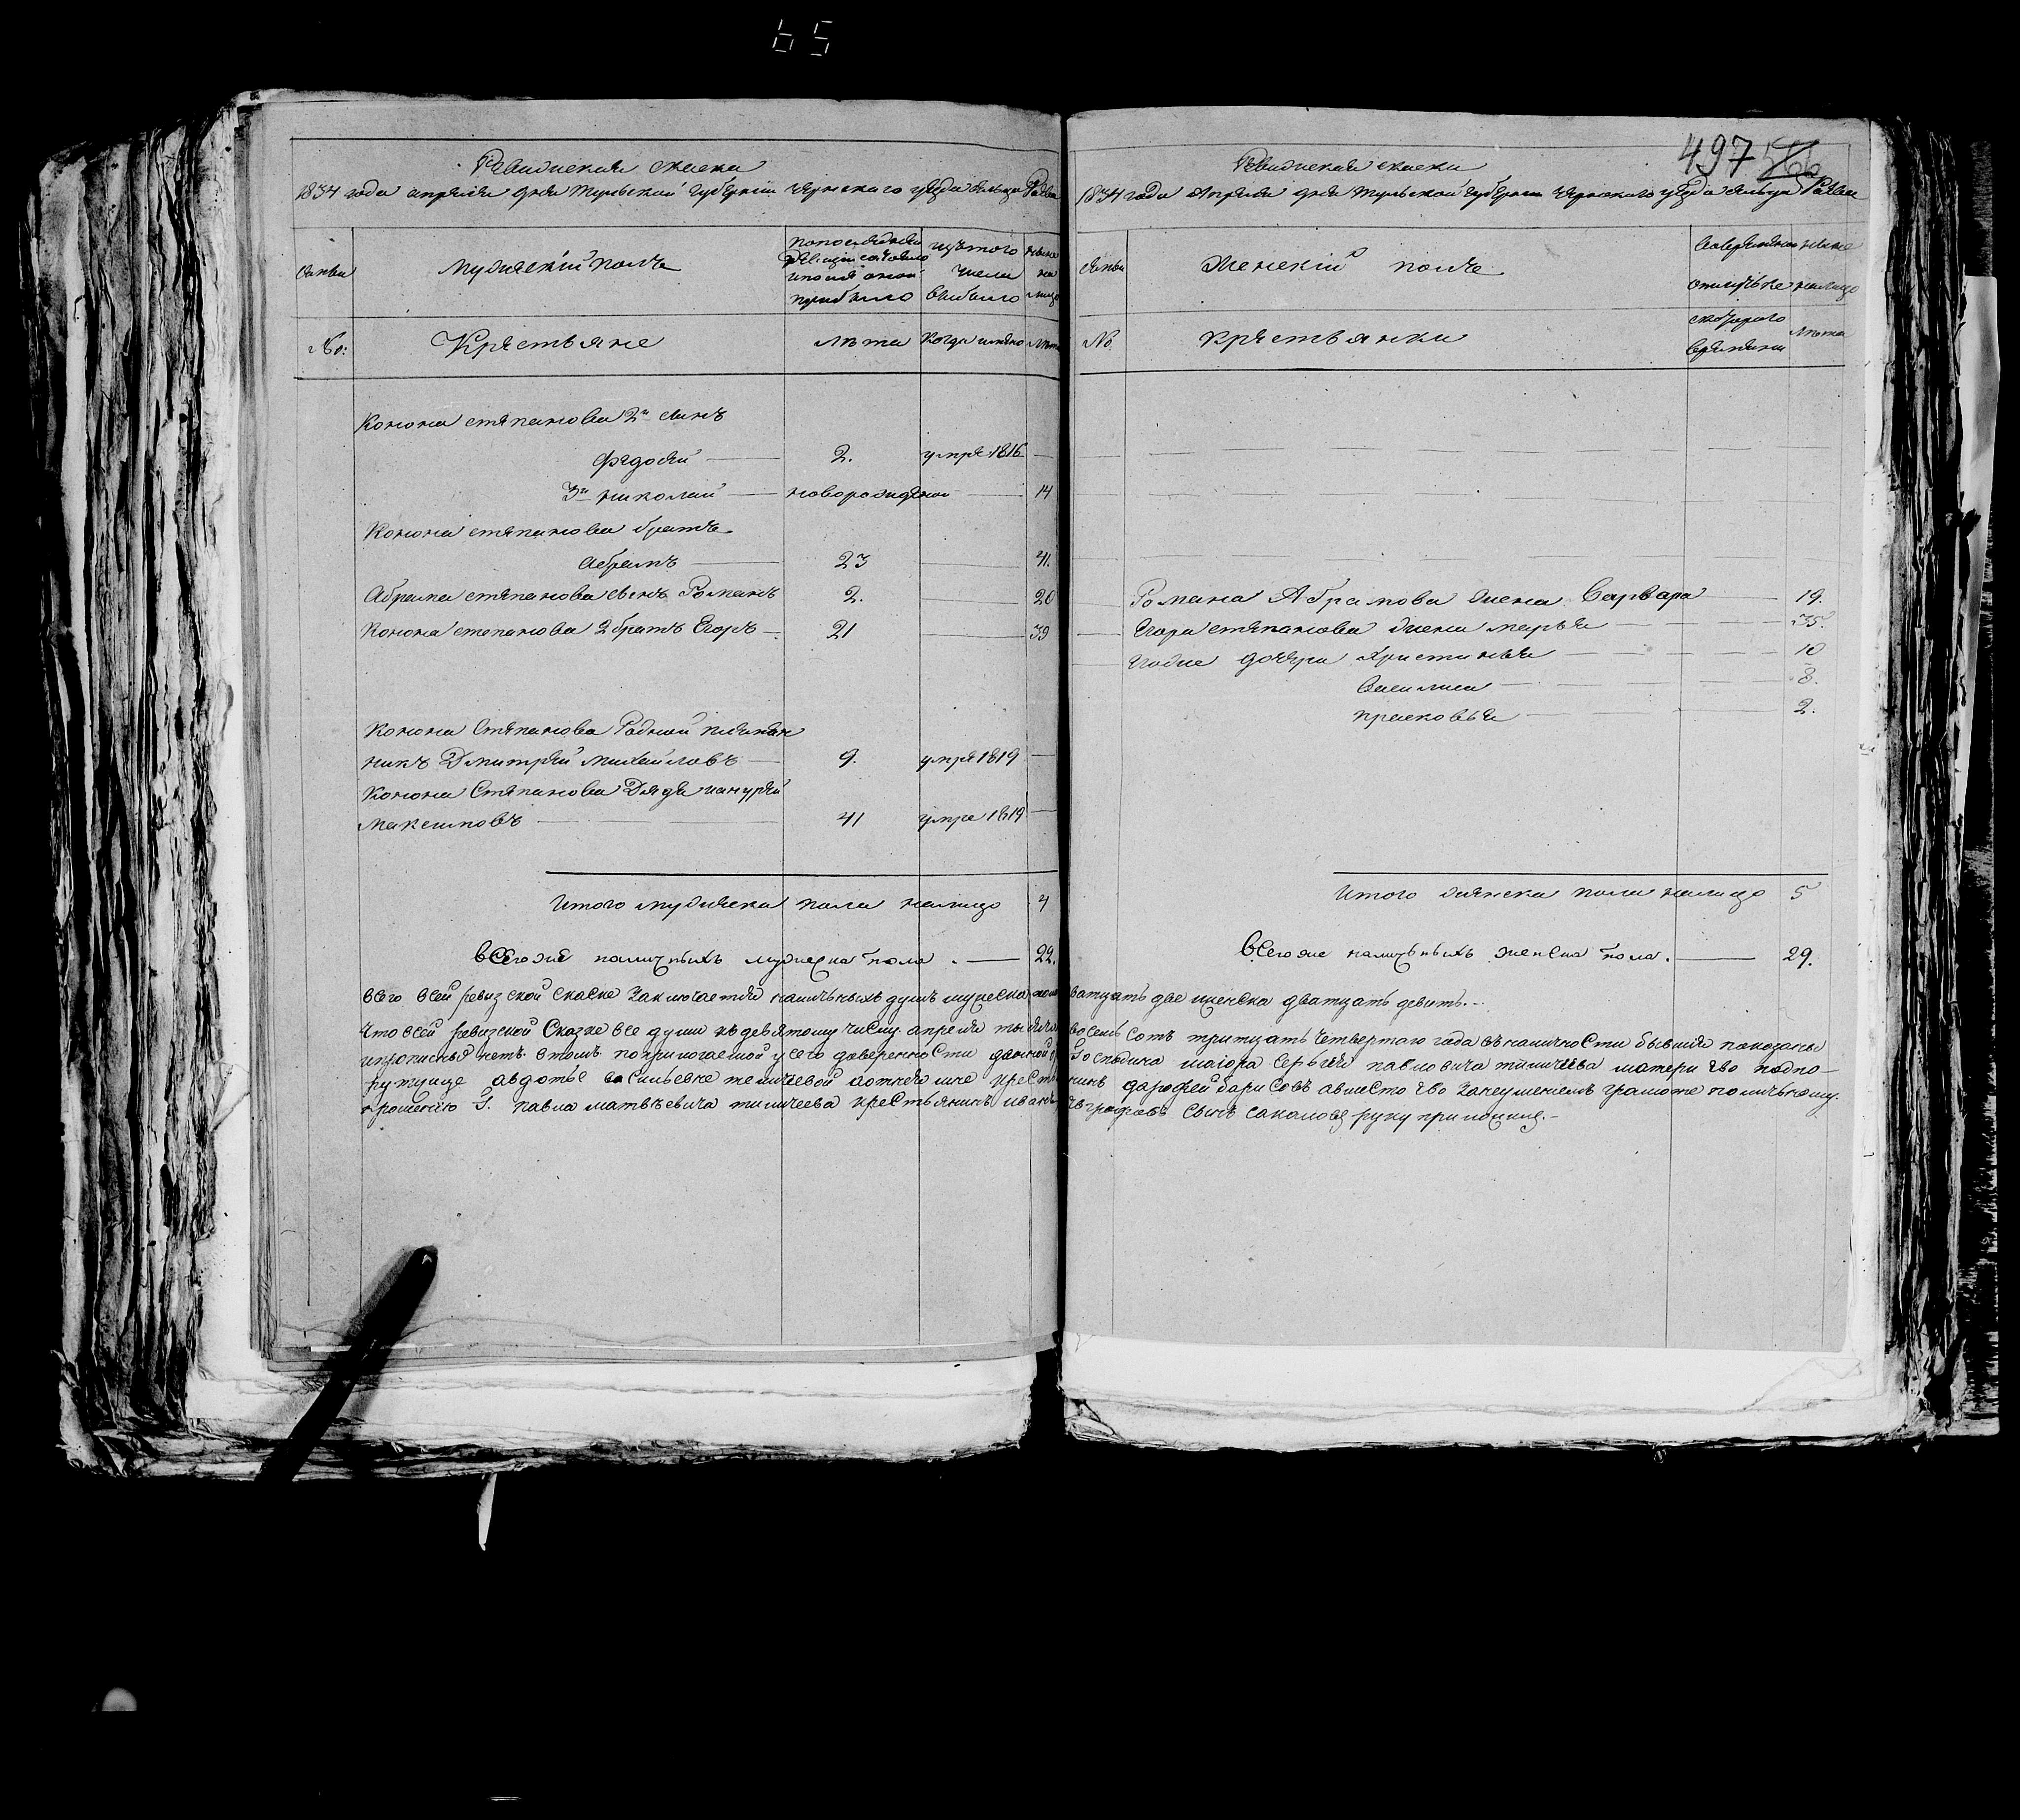 65
Ревиская скаска
1834 года апреля дня Тульской губернии чернского уезда сельца
семьи
мужеский полъ
по последней ревизии состояло и после оной прибыло
изъ того числа выбыло
ныне на лицо
№:
Крестьяне
лета
когда имяно
лета
Конона степанова 2й сынъ
Федосей 2. умре 1816
3й николай новорожденой 14
Конона степанова братъ
абрамъ 23 41.
Абрама степанова сынъ Романъ 2. 20
Конона степанова 2 братъ Егоръ 21 39
Конона Степанова Родной племян
никъ Дмитрей михайловъ 9. умре 1819
Конона Степанова Дядя
максимовъ 41 умре 1819
Итого мужеска пола налицо 4
всего же наличныхъ мужеска пола 22.
497
Ревиская скаска
1834 года Апреля дня Тульской губернии чернского уезда сельца
семьи
Женский полъ
во временной отлучке
ныне налицо
№
крестьянки
с которого времяни
лета
Романа Абрамова жена Варвара 19.
Егора степанова жена марья 35.
дочери Христинья 10
Василиса 8.
прасковья 2.
Итого женска пола налицо 5
Всего же наличьныхъ женска пола. 29.
всего всей ревизской скаске Заключается наличьныхъ душъ мужеска ватцать две женска дватцать девять.
Что всей ревизской Сказке все души къ девятому числу апреля восемь сотъ тритцать четвертаго года въ наличности бывшия показаны
и прописныхъ нетъ в томъ по прилогаемой у сего доверенности данной Господина маиора Серьгея павловича матери ево
авдотье васильевне крестья нинъ дарофей барисовъ а вместо ево Занеумениемъ грамоте по личьному
прошению Г. павла матвеевича крестьянинъ иванъ сынъ сакаловъ руку приложилъ.